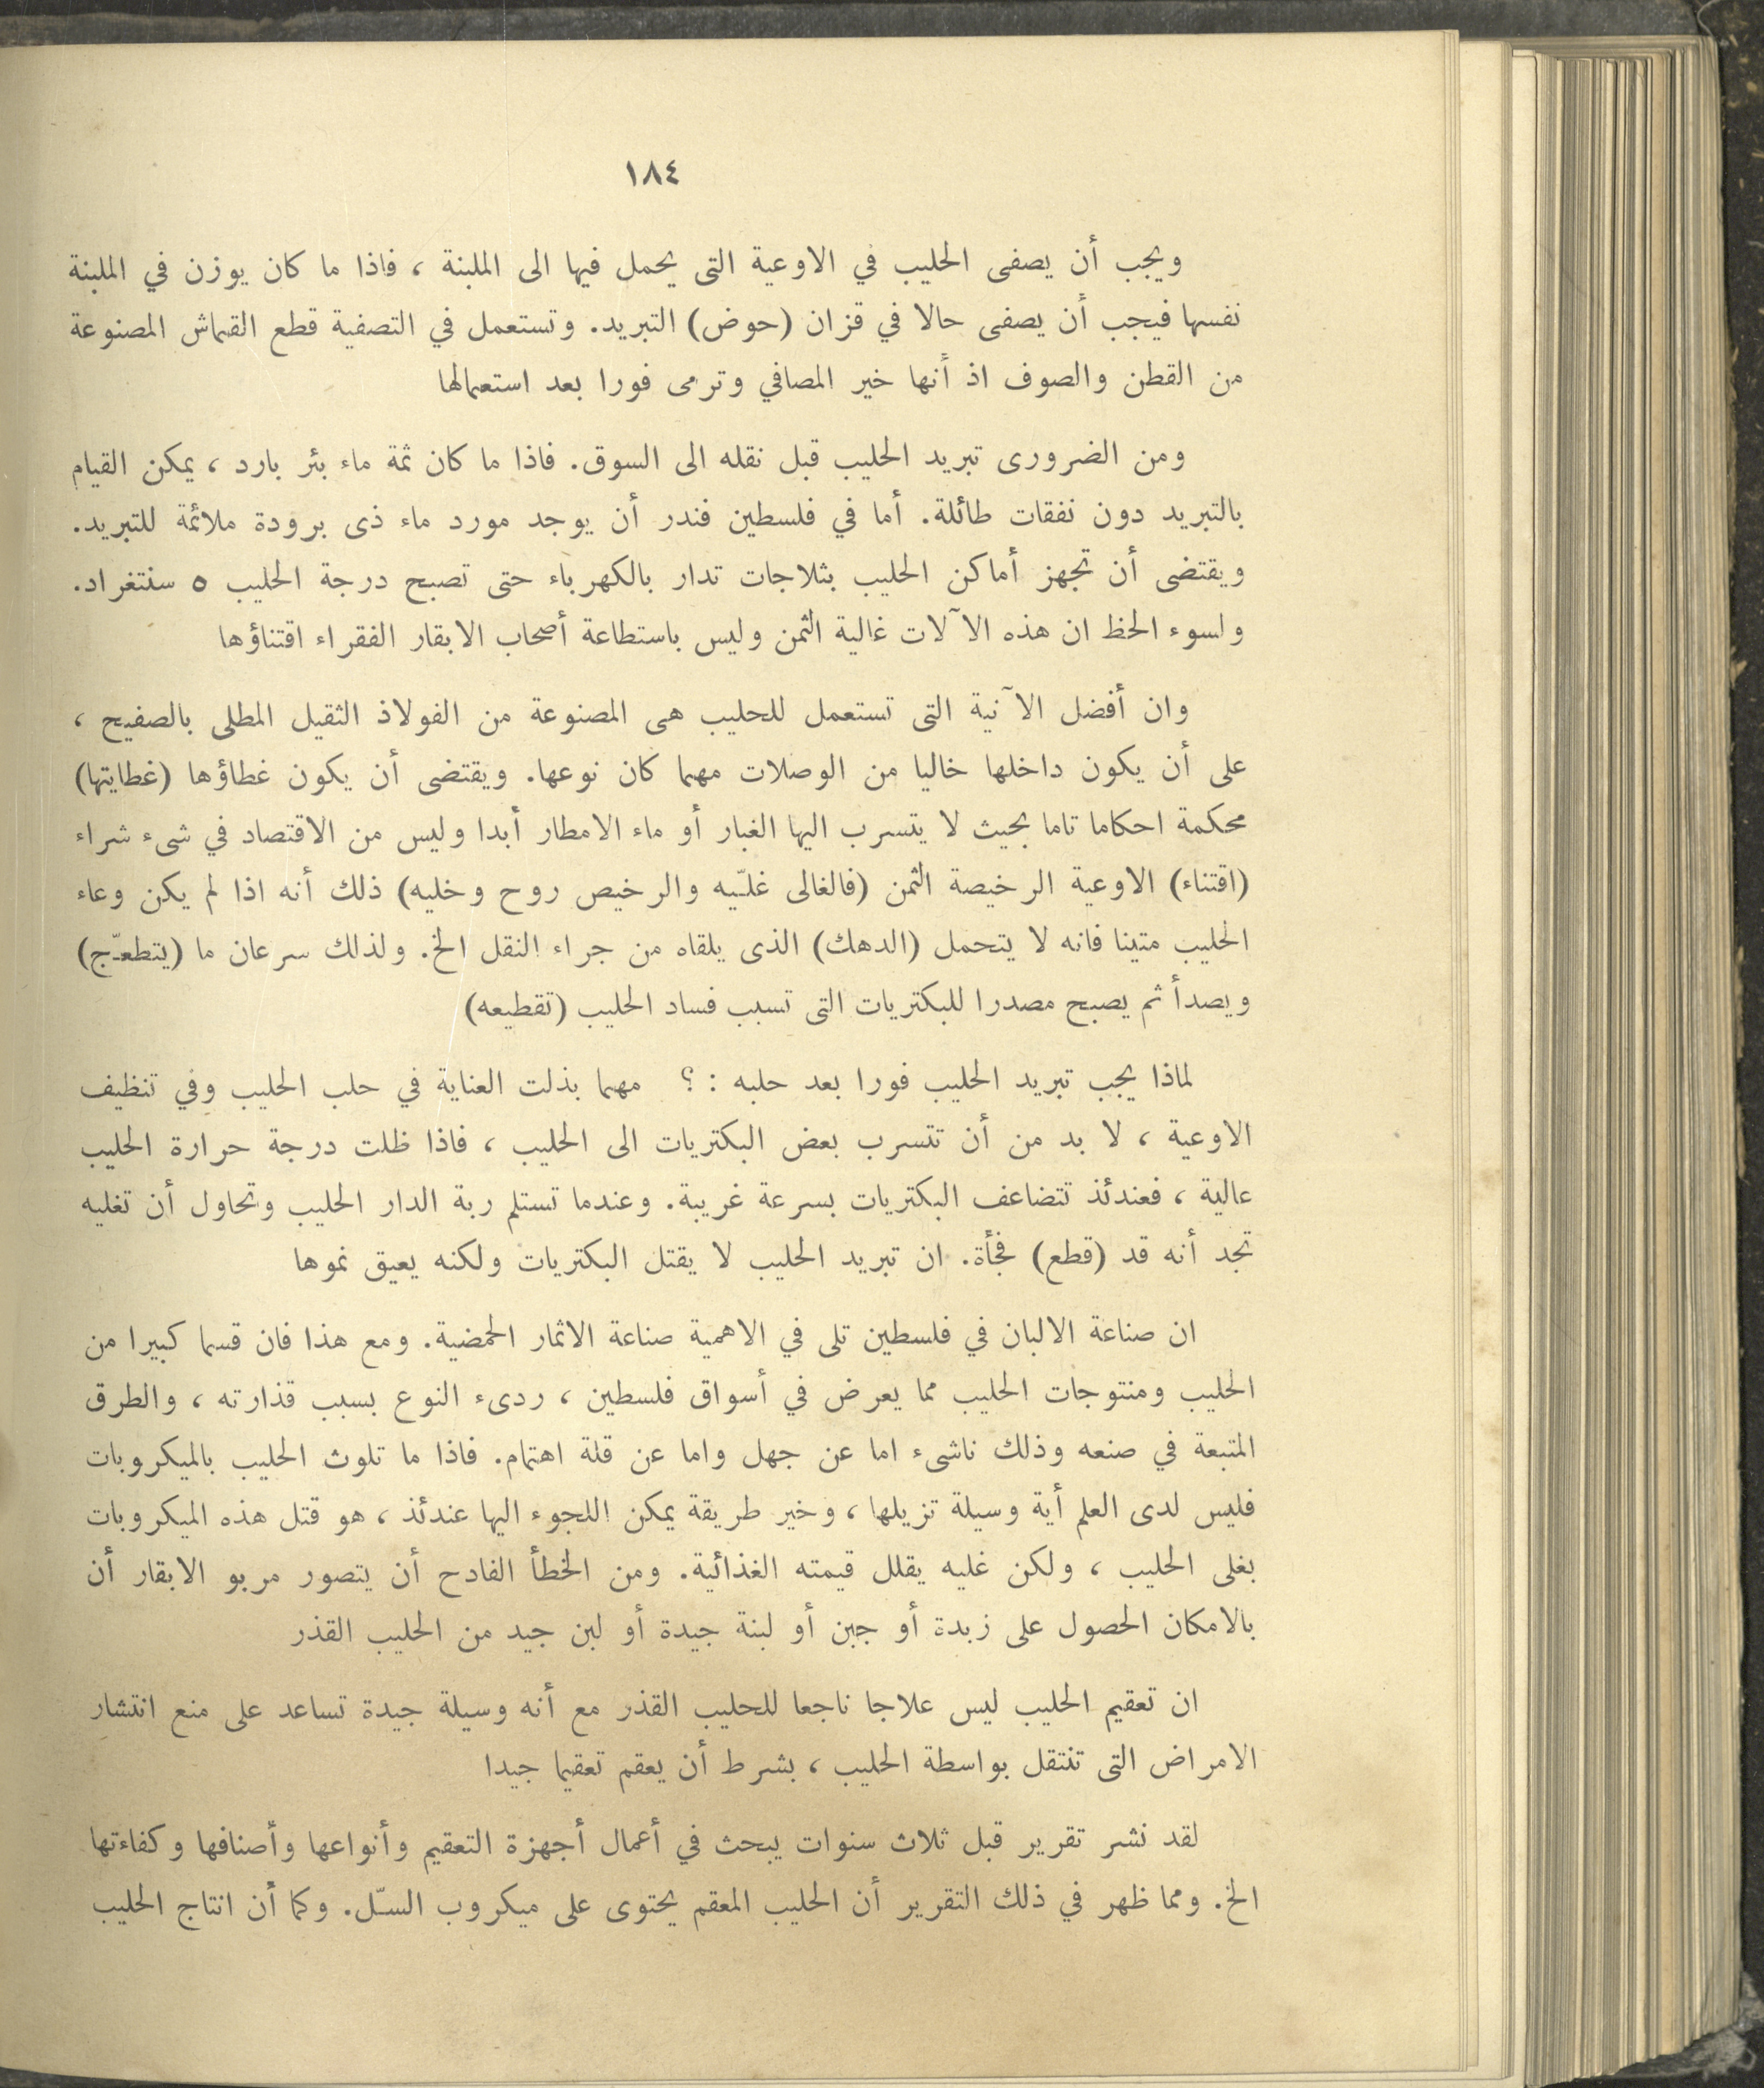 ١٨٤
ويجب أن يصفى الحليب في الاوعية التى يحمل فيها الى الملبنة ، فاذا ما كان يوزن في الملبنة
نفسها فيجب أن يصفى حالا في قزان (حوض) التبريد. وتستعمل في التصفية قطع القماش المصنوعة
من القطن والصوف اذ أنها خير المصافي وترمى فورا بعد استعمالها
ومن الضرورى تبريد الحليب قبل نقله الى السوق. فاذا ما كان ثمة ماء بئر بارد ، يمكن القيام
بالتبريد دون نفقات طائلة. أما في فلسطين فندر أن يوجد مورد ماء ذى برودة ملائمة للتبريد.
ويقتضى أن تجهز أماكن الحليب بثلاجات تدار بالكهرباء حتى تصبح درجة الحليب ٥ سنتغراد.
ولسوء الحظ ان هذه الآلات غالية الثمن وليس باستطاعة أصحاب الابقار الفقراء اقتناؤها
وان أفضل الآنية التى تستعمل للحليب هى المصنوعة من الفولاذ الثقيل المطلى بالصفيح ،
على أن يكون داخلها خاليا من الوصلات مهما كان نوعها. ويقتضى أن يكون غطاؤها (غطايتها)
محكمة احكاما تاما بحيث لا يتسرب اليها الغبار أو ماء الامطار أبدا وليس من الاقتصاد في شىء شراء
(اقتناء) الاوعية الرخيصة الثمن (فالغالى غلّيه والرخيص روح وخليه) ذلك أنه اذا لم يكن وعاء
الحليب متينا فانه لا يتحمل (الدهك) الذى يلقاه من جراء النقل الخ. ولذلك سرعان ما (يتطعّج)
ويصدأ ثم يصبح مصدرا للبكتريات التى تسبب فساد الحليب (تقطيعه)
لماذا يجب تبريد الحليب فورا بعد حلبه : ؟ مهما بذلت العناية في حلب الحليب وفي تنظيف
الاوعية ، لا بد من أن تتسرب بعض البكتريات الى الحليب ، فاذا ظلت درجة حرارة الحليب
عالية ، فعندئذ تتضاعف البكتريات بسرعة غريبة. وعندما تستلم ربة الدار الحليب وتحاول أن تغليه
تجد أنه قد (قطع) فجأة. ان تبريد الحليب لا يقتل البكتريات ولكنه يعيق نموها
ان صناعة الالبان في فلسطين تلى في الاهمية صناعة الاثمار الحمضية. ومع هذا فان قسما كبيرا من
الحليب ومنتوجات الحليب مما يعرض في أسواق فلسطين ، ردىء النوع بسبب قذارته ، والطرق
المتبعة في صنعه وذلك ناشىء اما عن جهل واما عن قلة اهتمام. فاذا ما تلوث الحليب بالميكروبات
فليس لدى العلم أية وسيلة تزيلها ، وخير طريقة يمكن اللجوء اليها عندئذ ، هو قتل هذه الميكروبات
بغلى الحليب ، ولكن غليه يقلل قيمته الغذائية. ومن الخطأ الفادح أن يتصور مربو الابقار أن
بالامكان الحصول على زبدة أو جبن أو لبنة جيدة أو لبن جيد من الحليب القذر
ان تعقيم الحليب ليس علاجا ناجعا للحليب القذر مع أنه وسيلة جيدة تساعد على منع انتشار
الامراض التى تنتقل بواسطة الحليب ، بشرط أن يعقم تعقيما جيدا
لقد نشر تقرير قبل ثلاث سنوات يبحث في أعمال أجهزة التعقيم وأنواعها وأصنافها وكفاءتها
الخ. ومما ظهر في ذلك التقرير أن الحليب المعقم يحتوى على ميكروب السّل. وكما أن انتاج الحليب